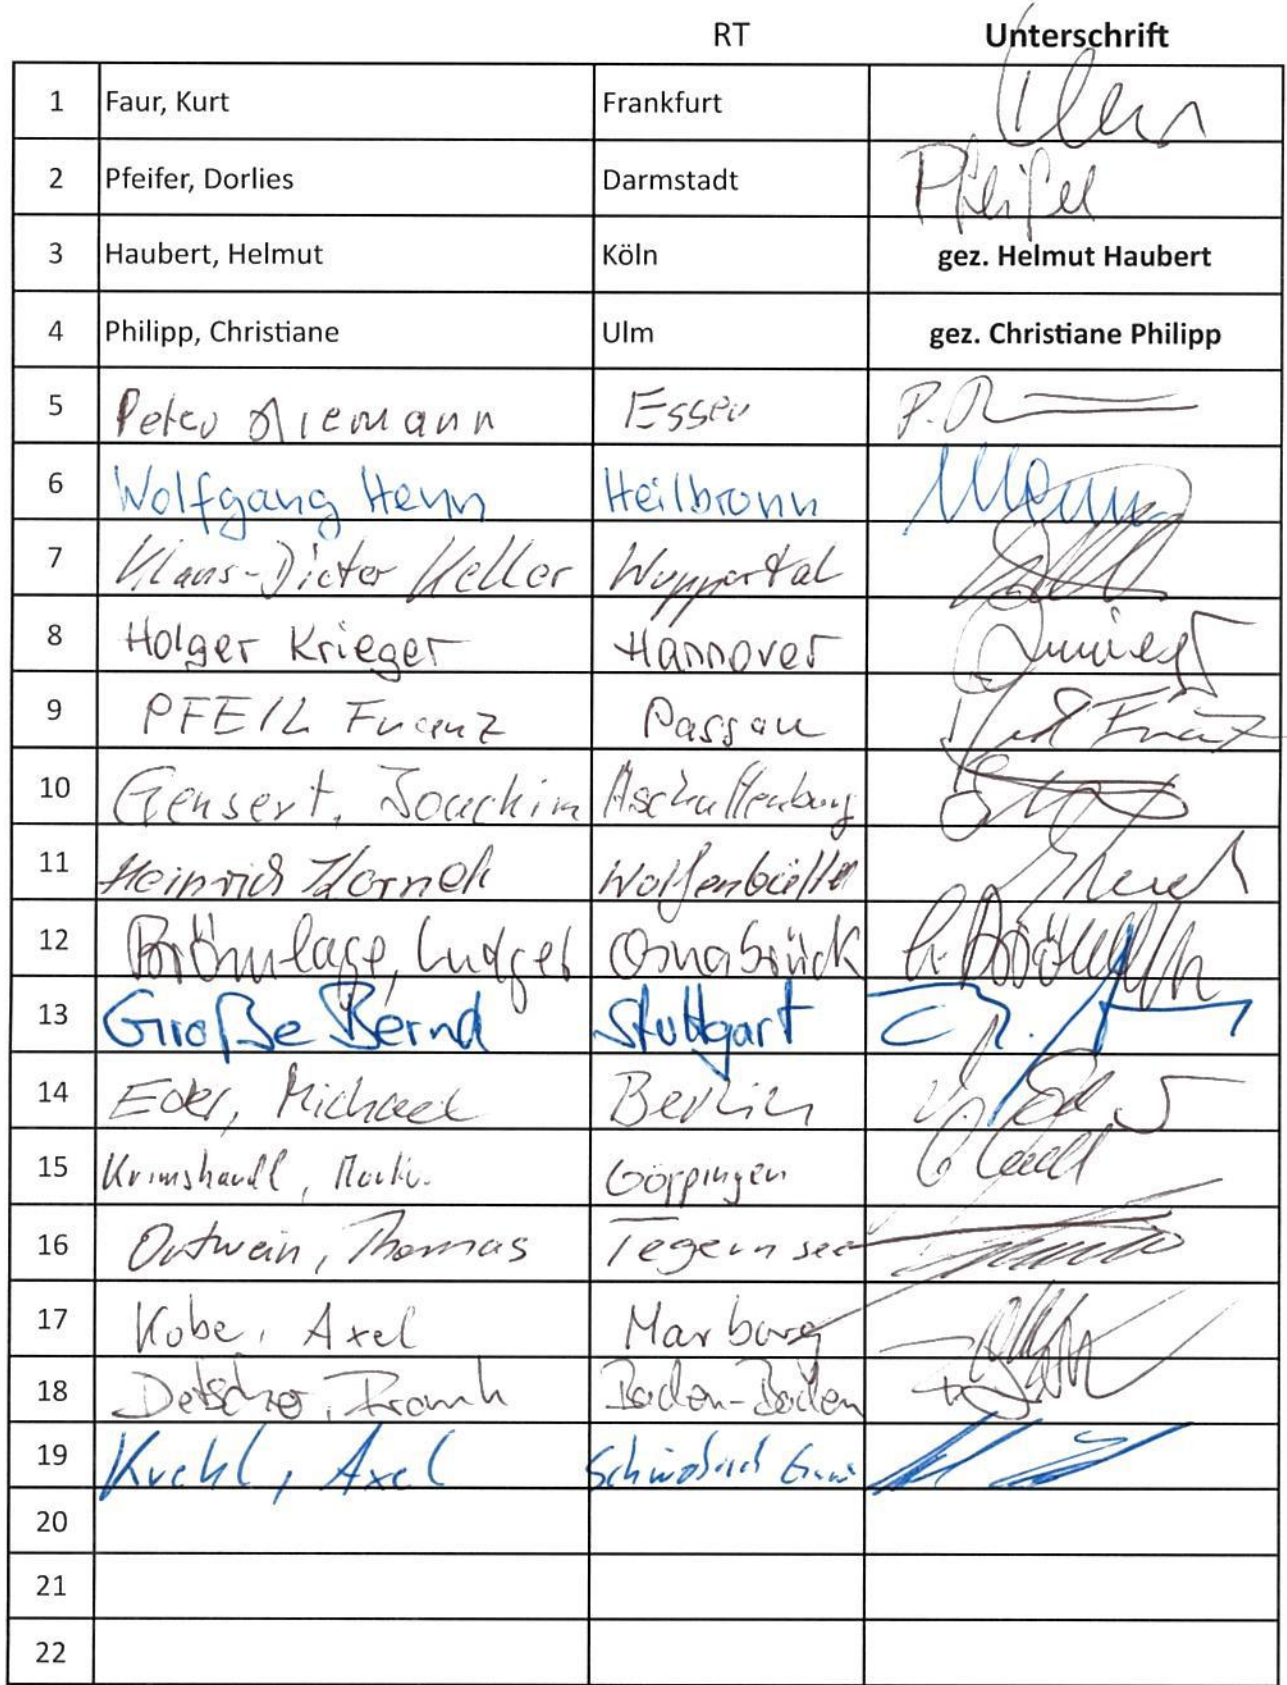 RT Unterschrift
1 Faur, Kurt Frankfurt
2 Pfeifer, Dorlies Darmstadt Pfeifer
3 Haubert, Helmut Köln gez. Helmut Haubert
4 Philipp, Christiane Ulm gez. Christiane Philipp
5 Peter Essen P.
6 Wolfgang Henn Heilbronn
7 Klaus-Dieter Keller Wuppertal
8 Holger Krieger Hannover
9 PFEIL Franz Passau Franz
10 Gensert, Joachim Aschaffenburg
11 Heinrich Wolfenbüttel
12 Brömlage, Ludger Osnabrück
13 Große Bernd Stuttgart
14 Eder, Michael Berlin
15 Göppingen
16 Ortwein, Thomas Tegernsee
17 Kobe, Axel Marburg
18 Frank Baden-Baden
19 Axel
20
21
22